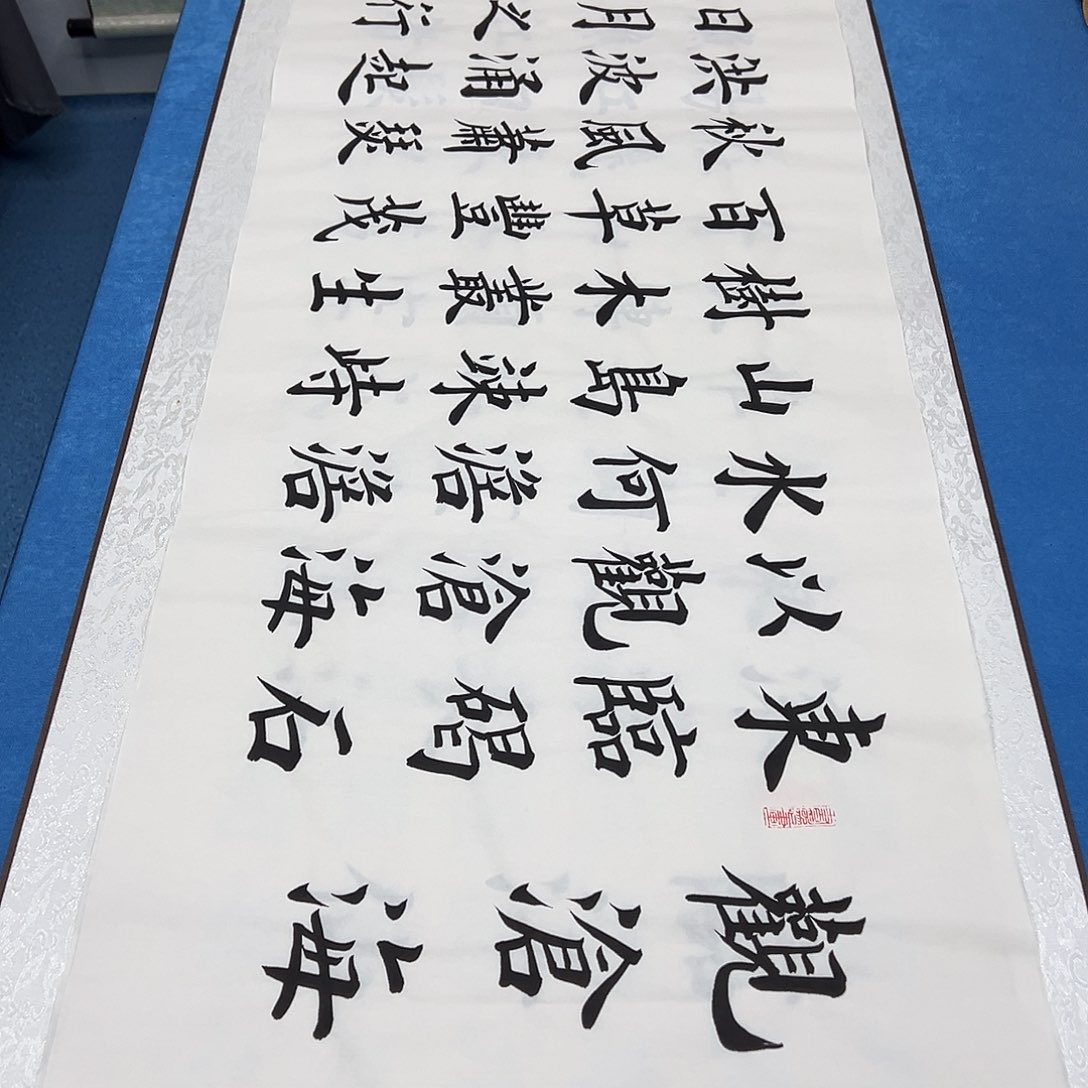 觀滄海
東臨碣石
以觀滄海
水何澹澹
山島竦峙
樹木叢生
百草豐茂
秋風蕭瑟
洪波涌起
日月之行